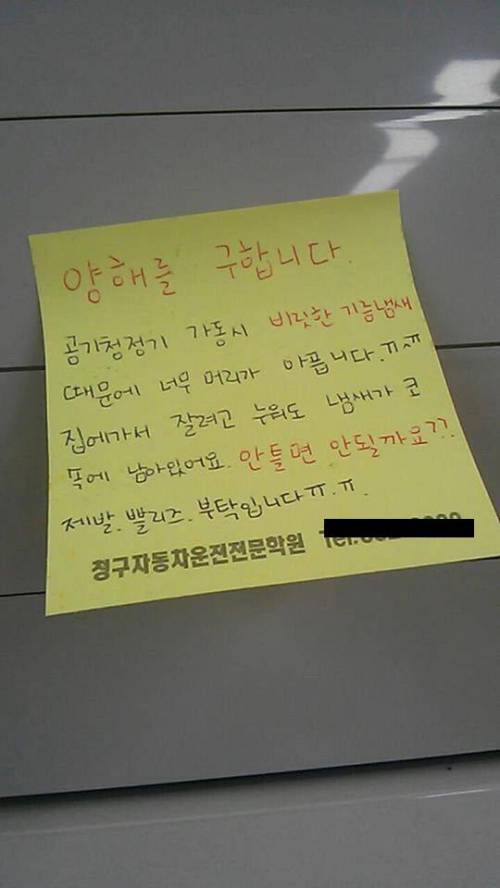 양해를 구합니다.
공기청정기 가동시 비릿한 기름냄새
때문에 너무 머리가 아픕니다.ㅠㅠ
집에가서 잘려고 누워도 냄새가 코
속에 남아있어요. 안틀면 안될까요??.
제발.쁠리즈.부탁입니다ㅠ.ㅠ.
청구자동차운전전문학원 Tel.